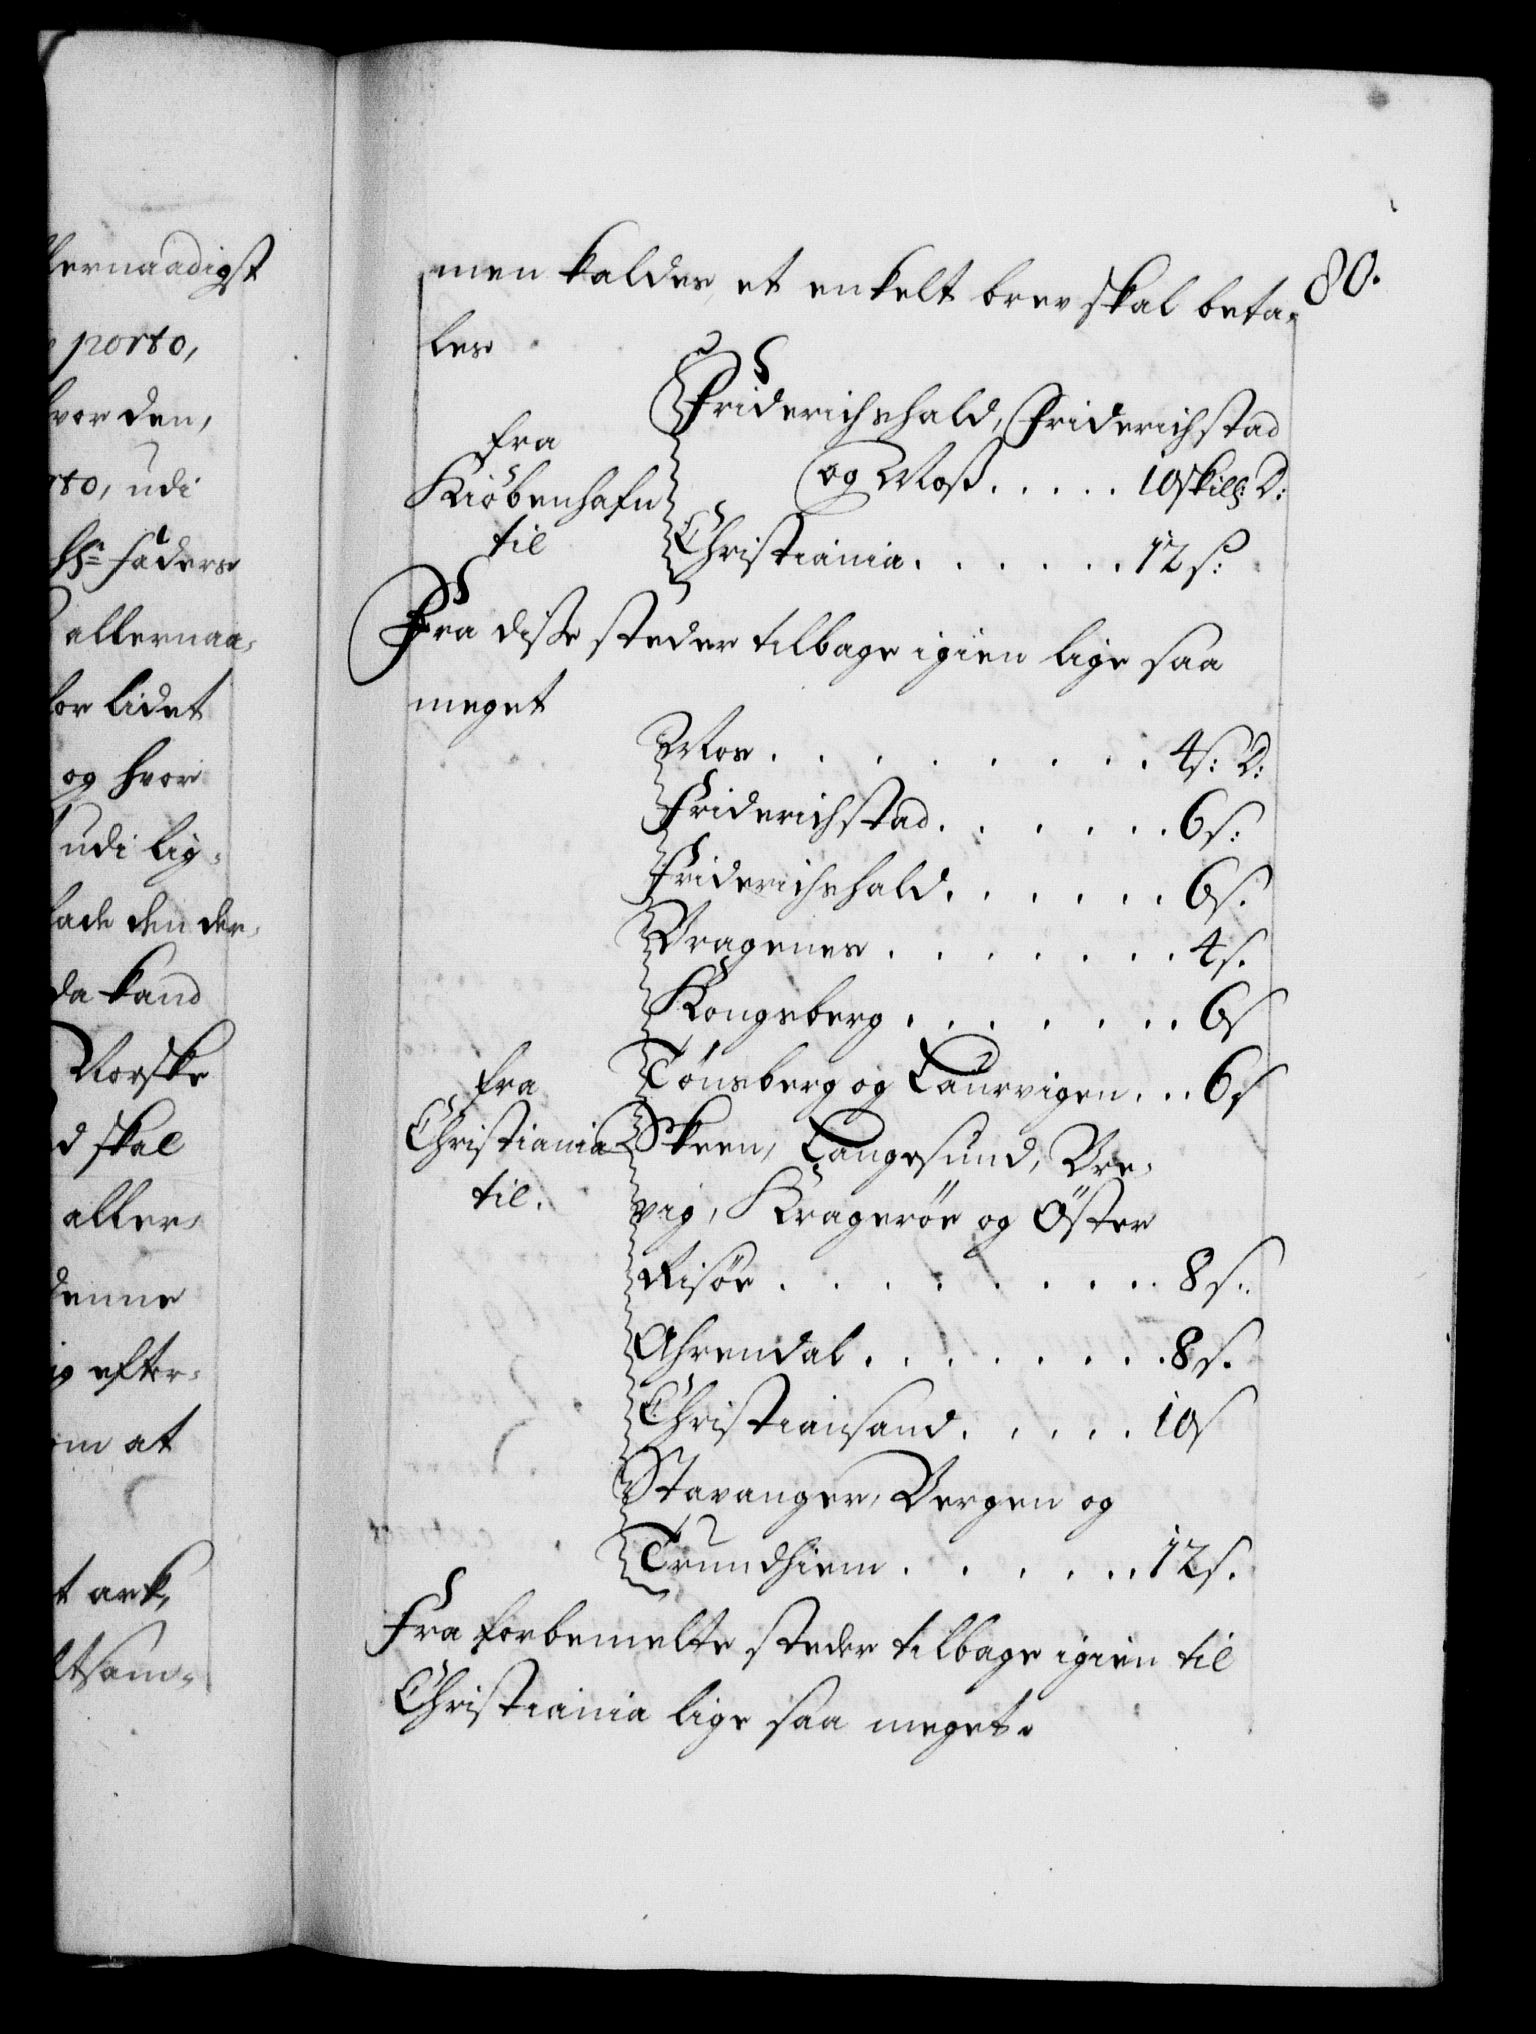 lernaadigst
porto,
hvor den,
rto, udi
Hr: faders
allernaa-
for lidet
og hvor
udi lig-
lade den der-
da kand
Norske
d skal
aller-
denne
ig efter-
om at
t ark,
ltsam-
80.
men kaldes et enkelt brev skal beta-
les
fra
Kiöbenhafn
til
Friderichshald, Friderichstad
og Moss . . . . . 10 skill: D:
Christiania . . . . . . 12 s:
Fra disse steder tilbage igien lige saa
meget
fra
Christiania
til.
Mos . . . . . . . . . 4 s: D:
Friderichstad . . . . . . 6 s:
Friderichshald . . . . . . 6 s.
Bragenes . . . . . . . 4 s.
Kongsberg . . . . . . . 6 s
Tönsberg og Laurvigen . . . 6 s
Skeen, Langesund, Bre-
vig, Krageröe og Öster
Risöe . . . . . . . . 8 s.
Ahrendal . . . . . . . . 8 s.
Christiansand . . . . . 10 s
Stavanger, Bergen og
Trundhiem . . . . . . 12 s.
Fra forbemelte steder tilbage igien til
Christiania lige saa meget.